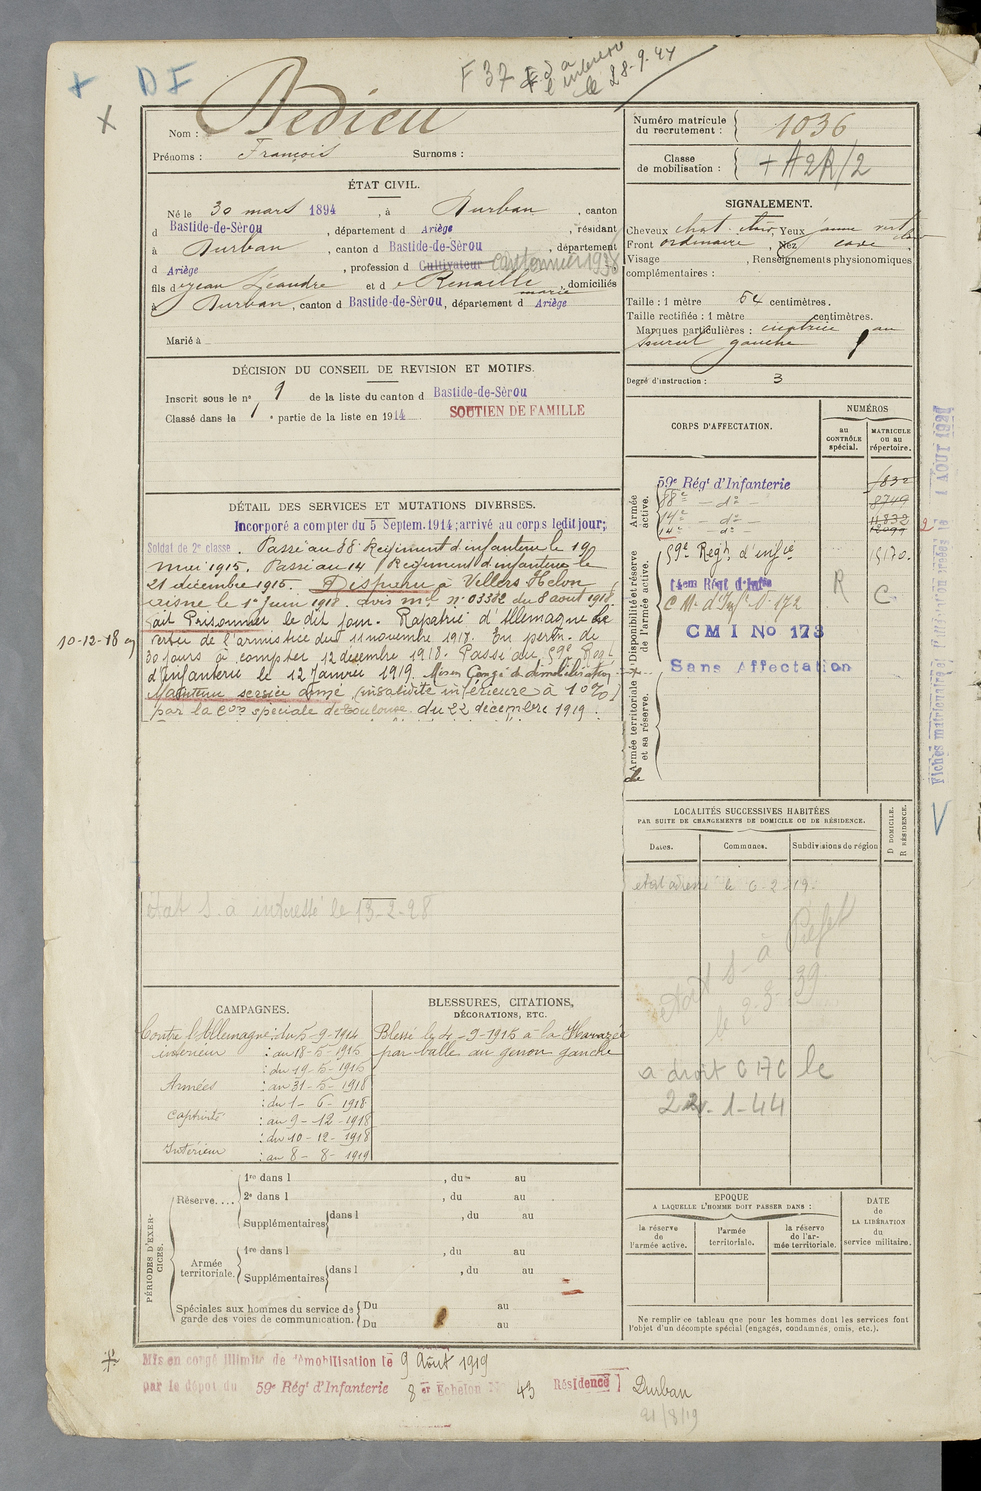 + D F
F 37 E d a
l'intéressé
le 28-9-47
X
Nom : Dedieu
Prénoms : François Surnoms :
Numéro matricule
du recrutement : 1036
Classe
de mobilisation : + A2R/2
ÉTAT CIVIL.
Né le 30 mars 1894, à Durban, canton
d Bastide-de-Sérou, département d Ariège, résidant
à Durban, canton d Bastide-de-Sérou, département
d Ariège, profession d Cultivateur Cantonnier 1938
fils de Jean Léandre et de Renaille Marie, domiciliés
à Durban, canton d Bastide-de-Sérou, département d Ariège
Marié à
SIGNALEMENT.
Cheveux chat. clair, Yeux jaune vert clair
Front ordinaire, Nez cave
Visage , Renseignements physionomiques
complémentaires :
Taille : 1 mètre 64 centimètres.
Taille rectifiée : 1 mètre centimètres.
Marques particulières : cicatrice au
sourcil gauche
Degré d'instruction : 3
DÉCISION DU CONSEIL DE REVISION ET MOTIFS.
Inscrit sous le n° 9 de la liste du canton d Bastide-de-Sérou
Classé dans la 1 e partie de la liste en 1914 SOUTIEN DE FAMILLE
CORPS D'AFFECTATION.
NUMÉROS
au
CONTRÔLE
spécial.
MATRICULE
ou au
répertoire.
Armée
active.
59e Régt d'Infanterie
88e — do —
14e — do —
14e — do —
8749
11.832
Disponibilité et réserve
de l'armée active.
59e Regt d'infie
14em Régt d'Infie
C M. d'Inf. No 172
CMI No 173
Sans Affectation
R
C
5170.
Armée territoriale
et sa réserve.
Fiches matriculaires
1 AOUT 192
DÉTAIL DES SERVICES ET MUTATIONS DIVERSES.
Incorporé a compter du 5 Septem. 1914; arrivé au corps ledit jour;
Soldat de 2e classe. Passé au 88e Régiment d'infanterie le 19
mai 1915. Passé au 14e Régiment d'infanterie le
21 décembre 1915. Disparu à Villers Helon
aisne le 1er Juin 1918. avis mel n° 03382 du 8 aout 1918
dit Prisonnier le dit jour. Rapatrié d'Allemagne le
10-12-18 en vertu de l'armistice du 11 novembre 1918. En perm. de
30 jours à compter 12 décembre 1918. Passé au 59e Régt
d'infanterie le 12 Janvier 1919. Mis en Congé de démobilisation
Maintenu service armé (invalidité inférieure à 10%)
par la Con spéciale de Toulouse du 22 décembre 1919.
état S. à intéressé le 13-2-28
LOCALITÉS SUCCESSIVES HABITÉES
PAR SUITE DE CHANGEMENTS DE DOMICILE OU DE RÉSIDENCE.
Dates.
Communes.
Subdivisions de région
D DOMICILE.
R RÉSIDENCE.
le 6-2-19.
état S- à Préfet
le 2-3-39
a droit CAC le
22-1-44
CAMPAGNES.
Contre l'Allemagne : du 5-9-1914
intérieur : au 18-5-1915
: du 19-5-1915
Armées : au 31-5-1918
: du 1-6-1918
captivité : au 9-12-1918
: du 10-12-1918
Intérieur : au 8-8-1919
BLESSURES, CITATIONS,
DÉCORATIONS, ETC.
Blessé le 4-9-1915 à la Harazée
par balle au genou gauche
PÉRIODES D'EXERCICES.
Réserve....
1re dans l , du au
2e dans l , du au
Supplémentaires dans l , du au
Armée
territoriale.
1re dans l , du au
Supplémentaires dans l , du au
Spéciales aux hommes du service de
garde des voies de communication.
Du au
Du au
EPOQUE
A LAQUELLE L'HOMME DOIT PASSER DANS :
la réserve
de
l'armée active.
l'armée
territoriale.
la réserve
de l'ar-
mée territoriale.
DATE
de
LA LIBÉRATION
du
service militaire.
Ne remplir ce tableau que pour les hommes dont les services font
l'objet d'un décompte spécial (engagés, condamnés, omis, etc.).
Mis en congé illimité de démobilisation le 9 Août 1919
par le dépot du 59e Régt d'Infanterie 8 er Echelon N° 43 Résidence Durban
21/8/19